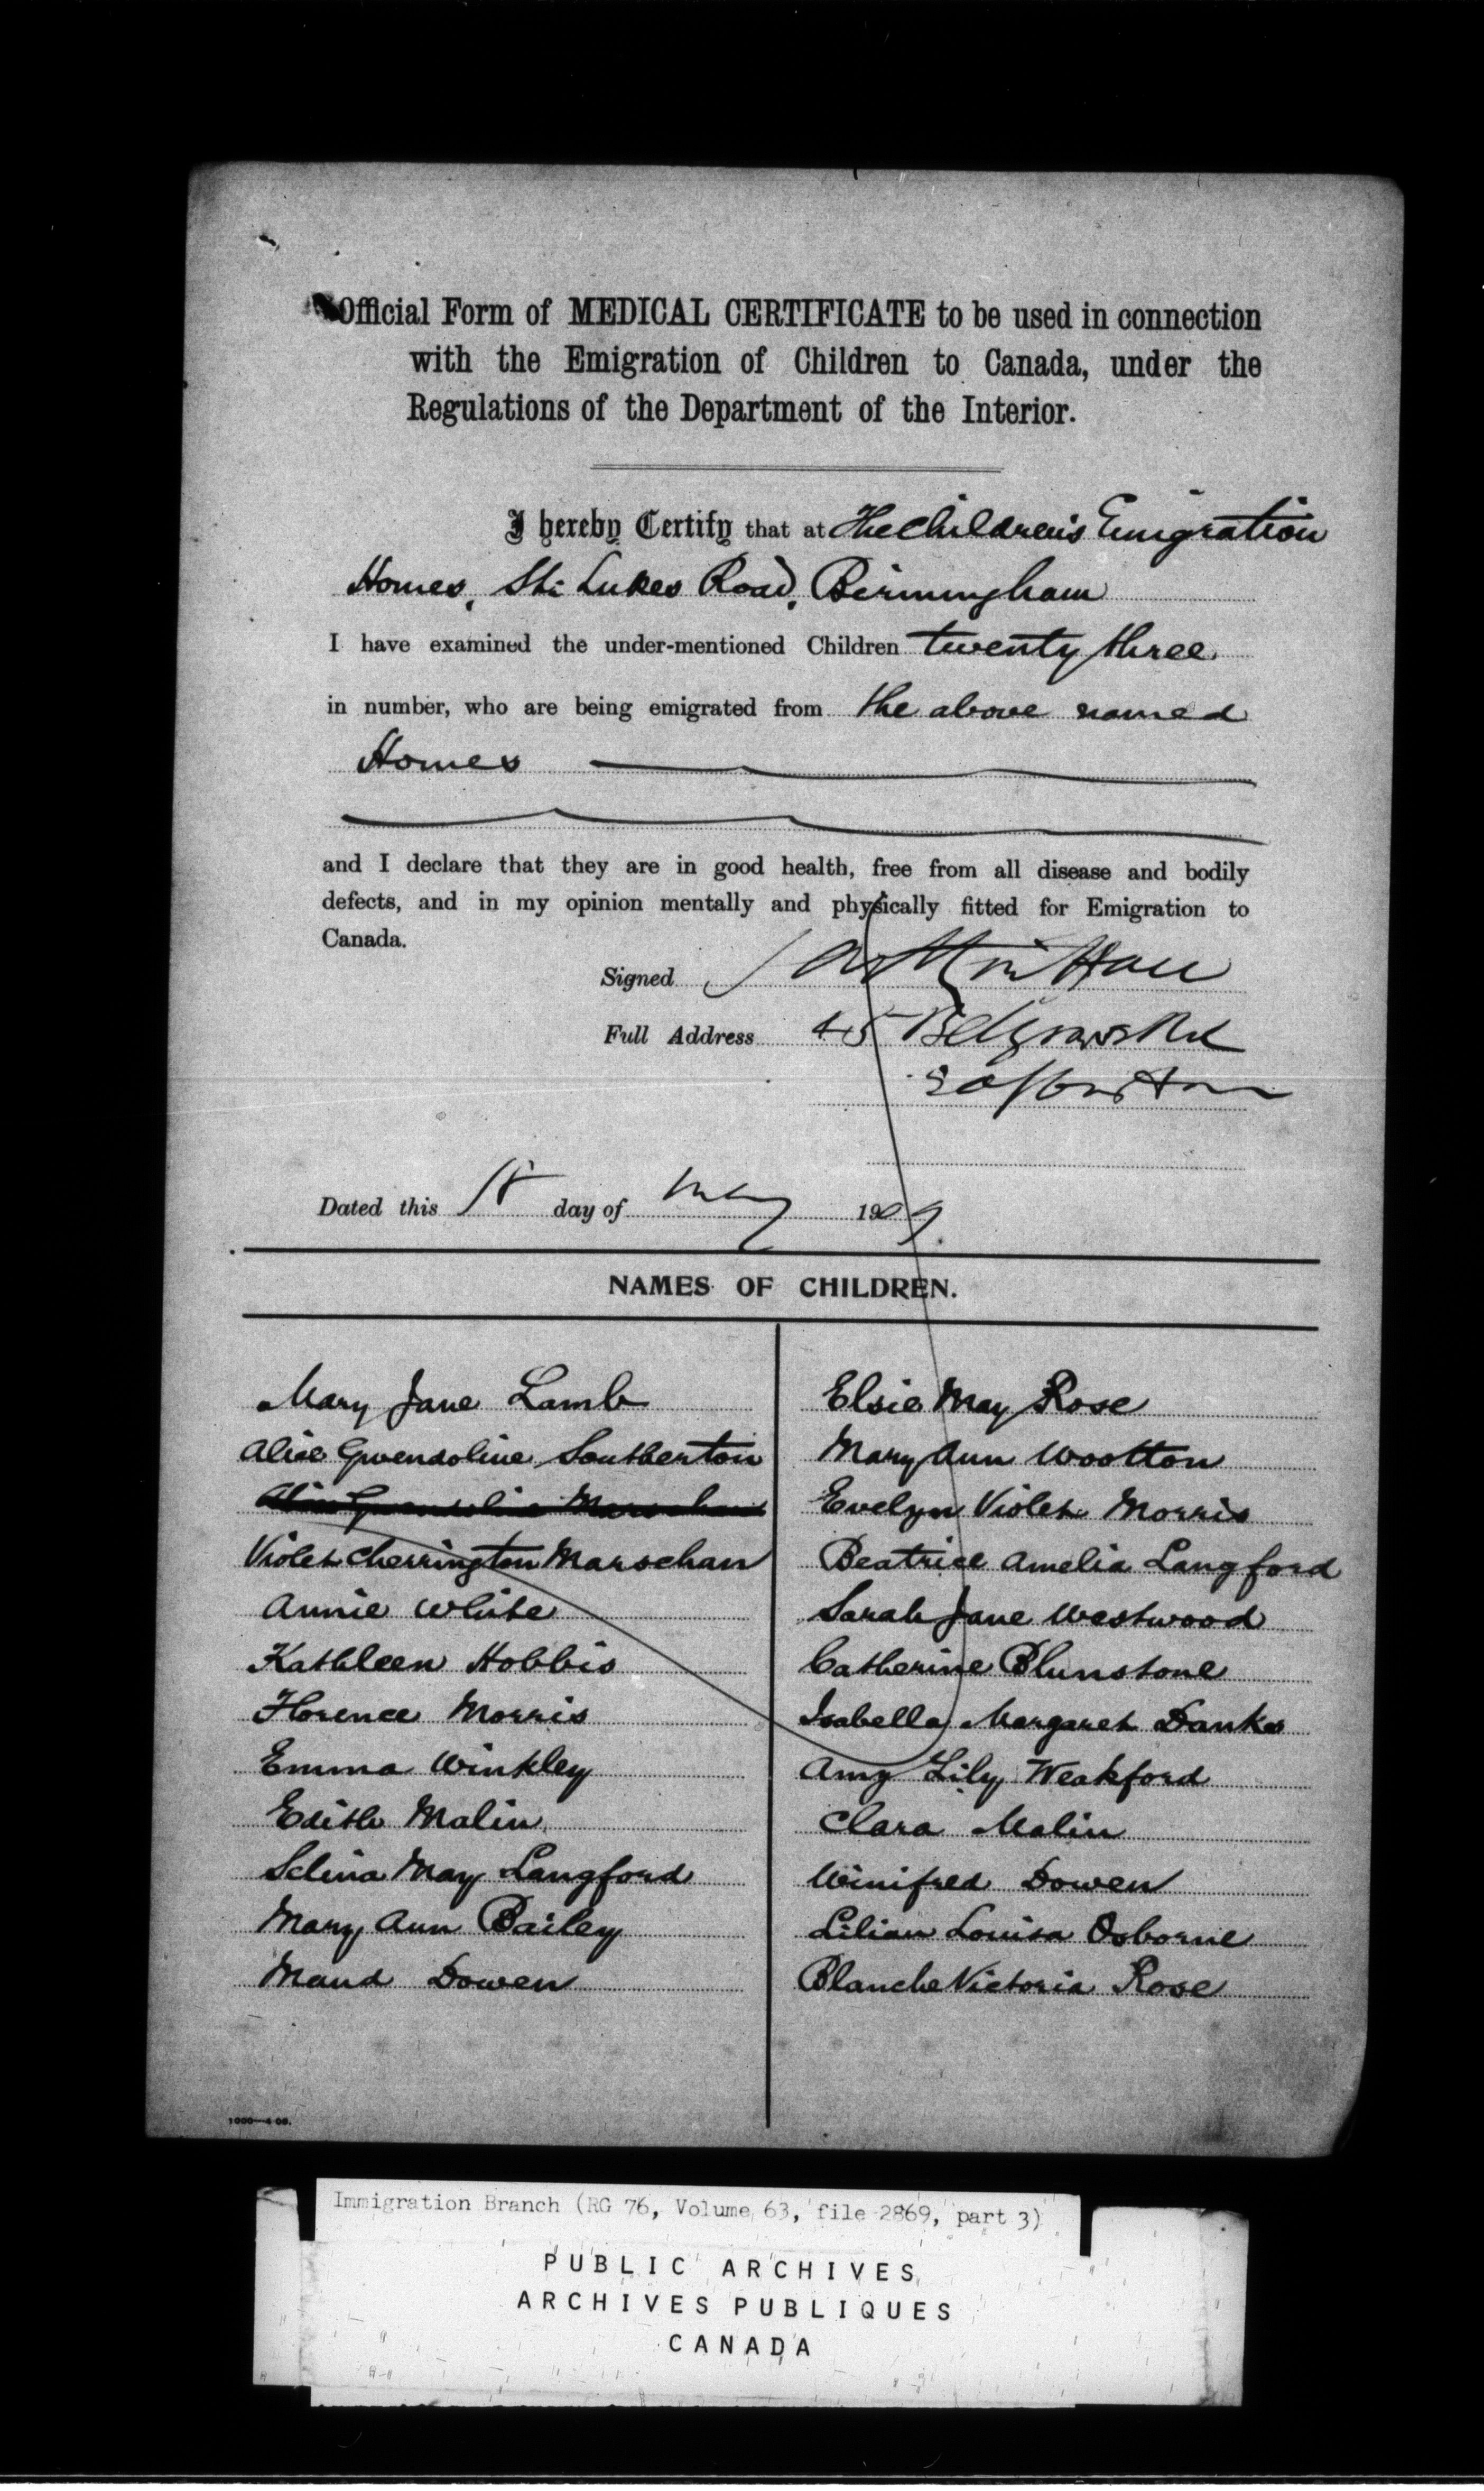 Official Form of MEDICAL CERTIFICATE to be used in connection
with the Emigration of Children to Canada, under the
Regulations of the Department of the Interior.
I hereby Certify that at The Children's Emigration
Homes, St. Lukes Road, Birmingham
I have examined the under-mentioned Children twenty three
in number, who are being emigrated from the above named
Homes
and I declare that they are in good health, free from all disease and bodily
defects, and in my opinion mentally and physically fitted for Emigration to
Canada.
Signed
Full Address 45
Dated this 18 day of May 1909.
NAMES OF CHILDREN.
Mary Jane Lamb
Alice Gwendoline Southerton
Violet Cherrington Marschan
Annie White
Kathleen Hobbis
Florence Morris
Emma Winkley
Edith Malin
Selina May Langford
Mary Ann Bailey
Maud Dowen
Elsie May Rose
Mary Ann Wootton
Evelyn Violet Morris
Beatrice Amelia Langford
Sarah Jane Westwood
Catherine Blunstone
Isabella Margaret Danks
Amy Lily Weakford
Clara Malin
Winifred Dowen
Lilian Louisa Osborne
Blanche Victoria Rose
Immigration Branch (RG 76, Volume 63, file 2869, part 3)
PUBLIC ARCHIVES
ARCHIVES PUBLIQUES
CANADA